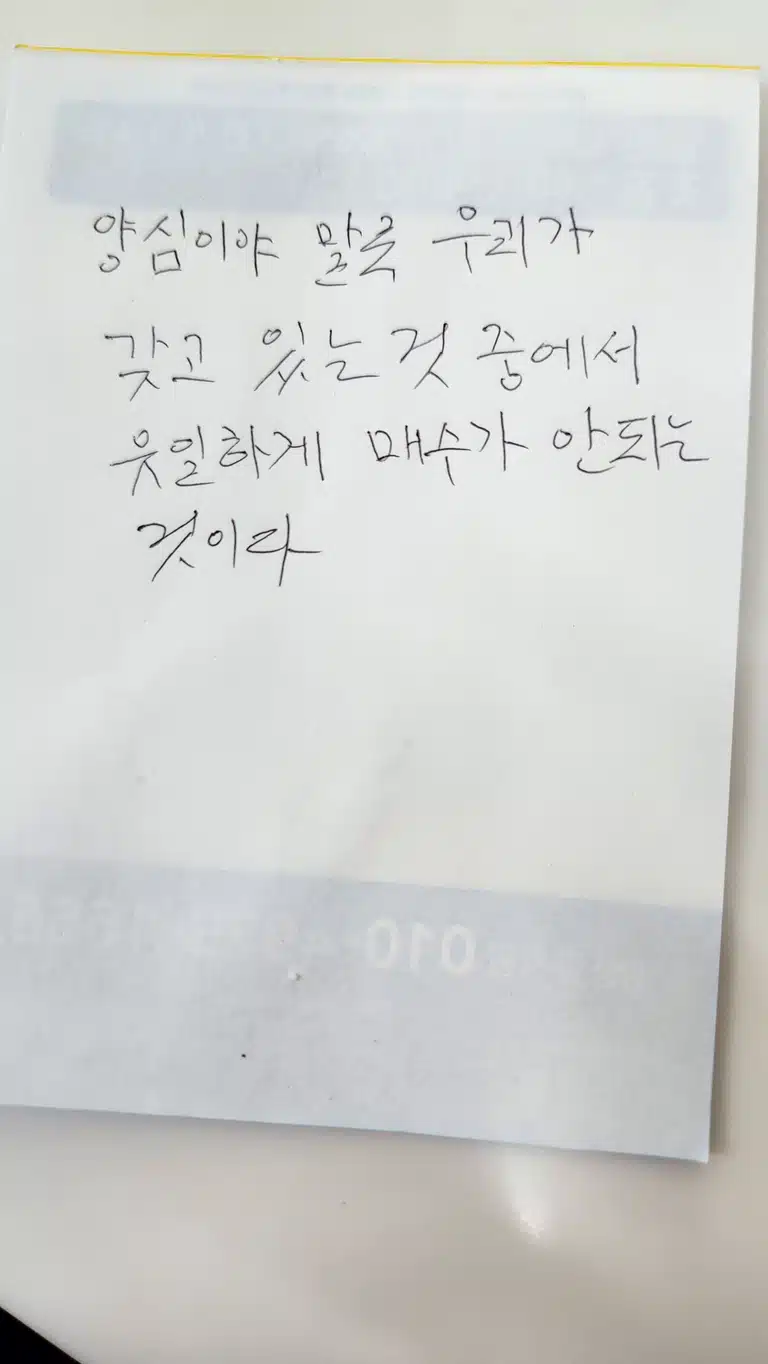 양심이야 말로 우리가
갖고 있는것 중에서
유일하게 매수가 안되는
것이다
010